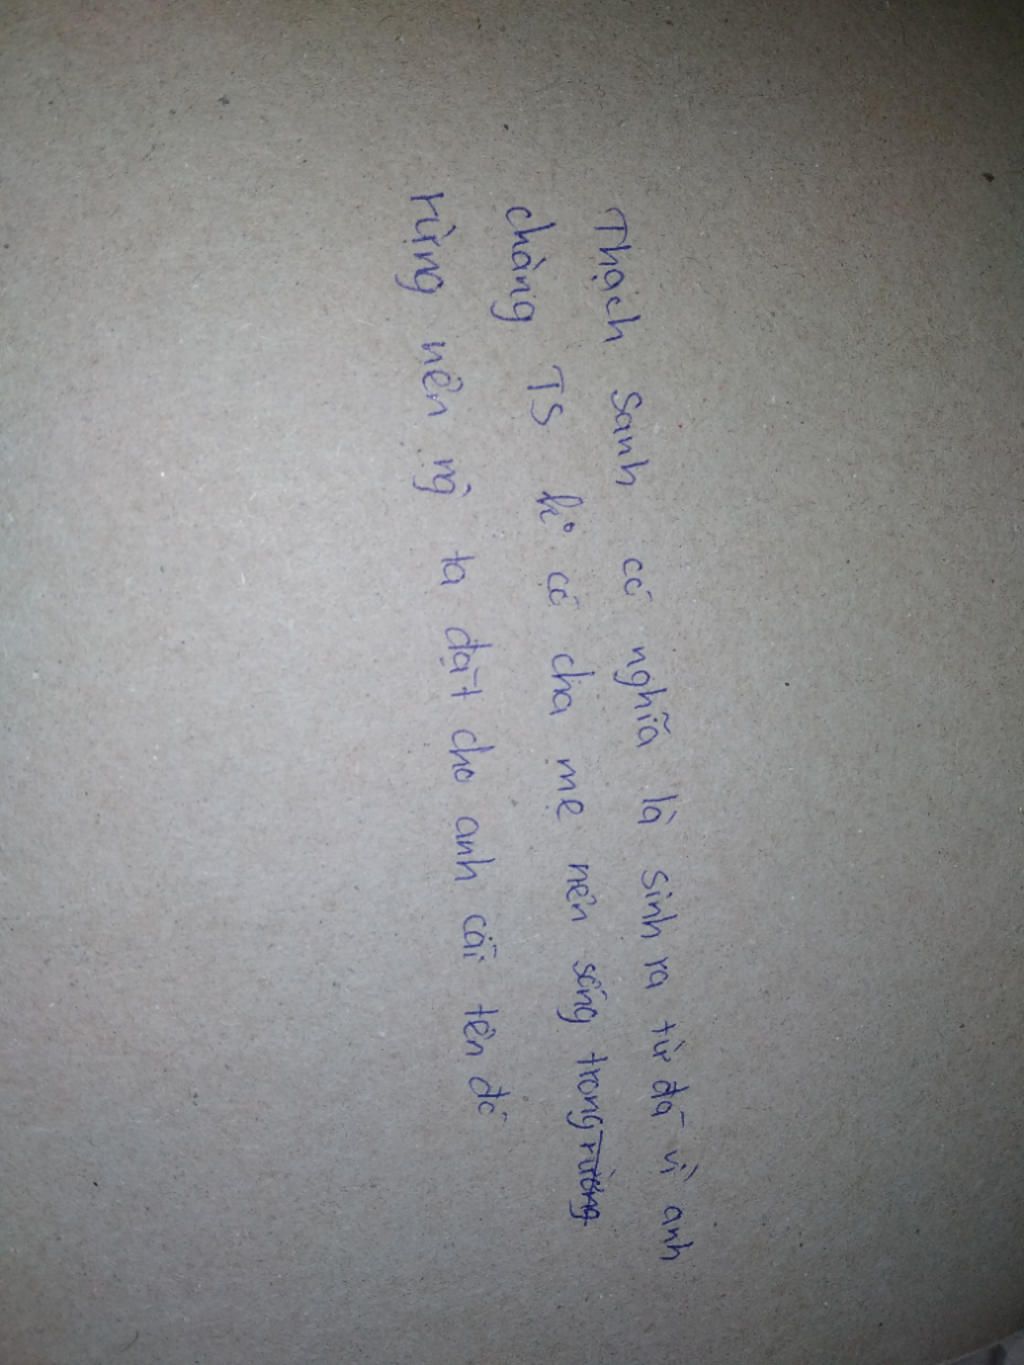 Thạch Sanh có nghĩa là sinh ra từ đá vì anh
chàng TS ko có cha mẹ nên sống trong
rừng nên ng ta đặt cho anh cái tên đó